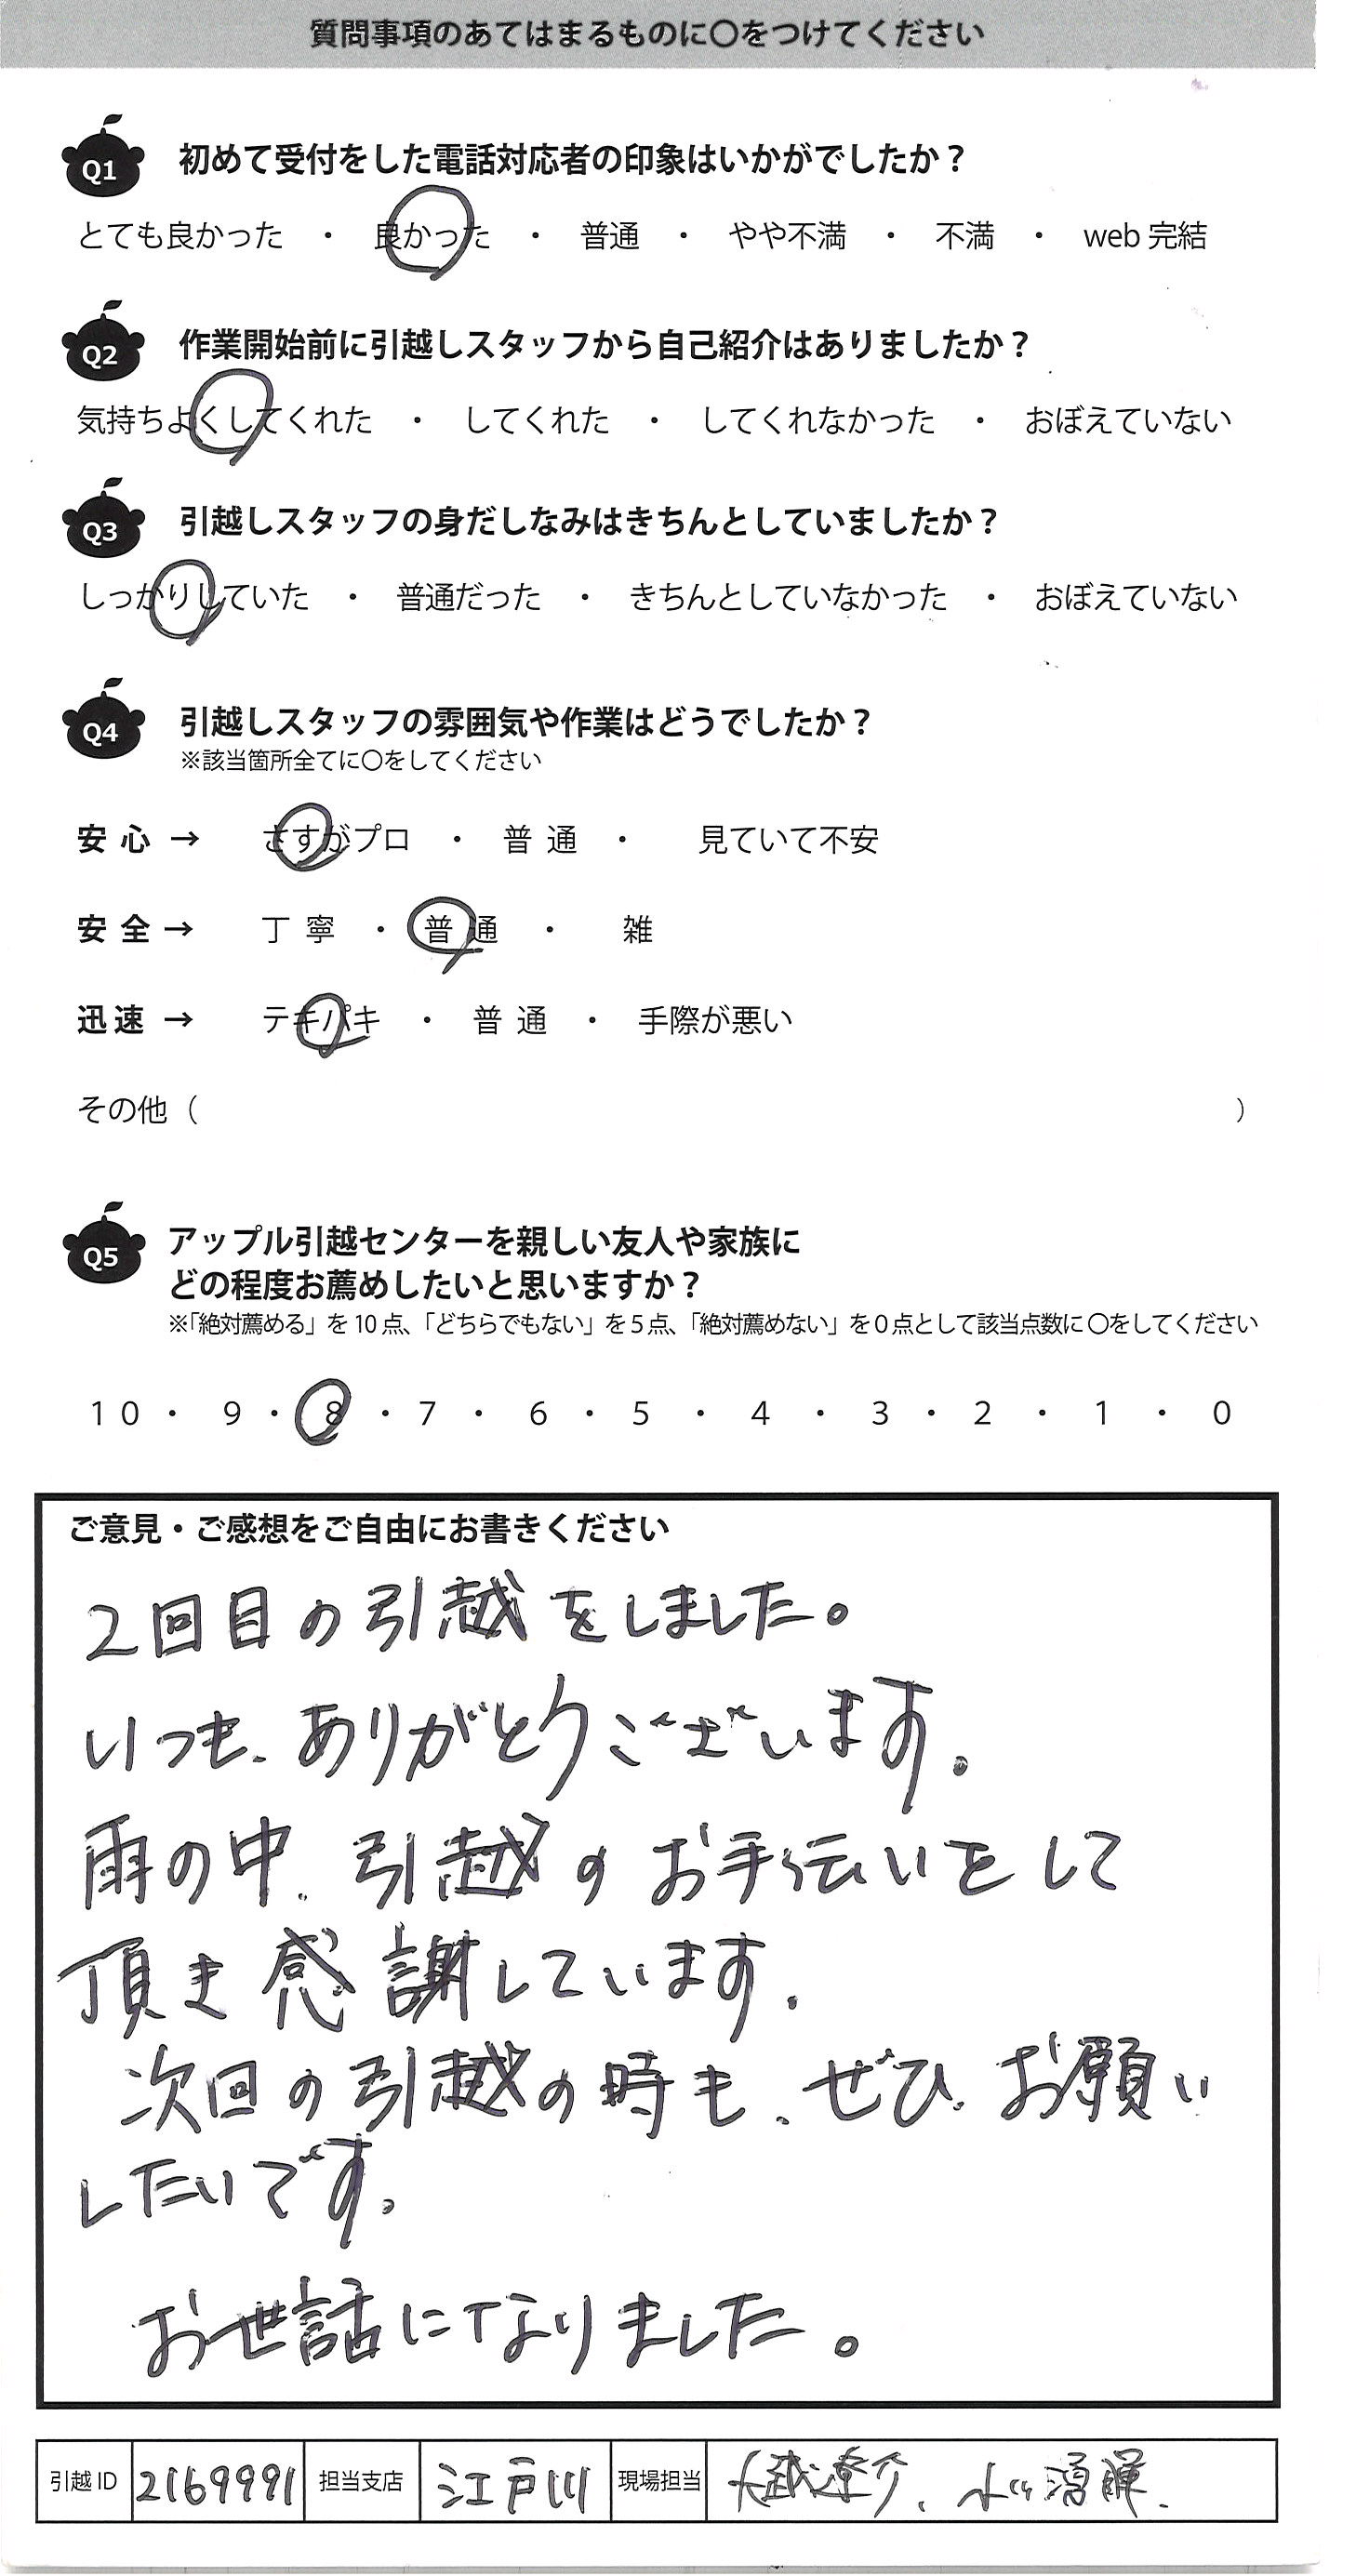 質問事項のあてはまるものに〇をつけてください
Q1 初めて受付をした電話対応者の印象はいかがでしたか？
とても良かった ・ 良かった ・ 普通 ・ やや不満 ・ 不満 ・ web 完結
Q2 作業開始前に引越しスタッフから自己紹介はありましたか？
気持ちよくしてくれた ・ してくれた ・ してくれなかった ・ おぼえていない
Q3 引越しスタッフの身だしなみはきちんとしていましたか？
しっかりしていた ・ 普通だった ・ きちんとしていなかった ・ おぼえていない
Q4 引越しスタッフの雰囲気や作業はどうでしたか？
※該当箇所全てに〇をしてください
安心 → さすがプロ ・ 普通 ・ 見ていて不安
安全 → 丁寧 ・ 普通 ・ 雑
迅速 → テキパキ ・ 普通 ・ 手際が悪い
その他（ ）
Q5 アップル引越センターを親しい友人や家族に
どの程度お薦めしたいと思いますか？
※「絶対薦める」を10点、「どちらでもない」を5点、「絶対薦めない」を0点として該当点数に〇をしてください
10 ・ 9 ・ 8 ・ 7 ・ 6 ・ 5 ・ 4 ・ 3 ・ 2 ・ 1 ・ 0
ご意見・ご感想をご自由にお書きください
2回目の引越をしました。
いつも、ありがとうございます。
雨の中、引越のお手伝いをして
頂き感謝しています。
次回の引越の時も、ぜひ、お願い
したいです。
お世話になりました。
引越ID 2169991 担当支店 江戸川 現場担当